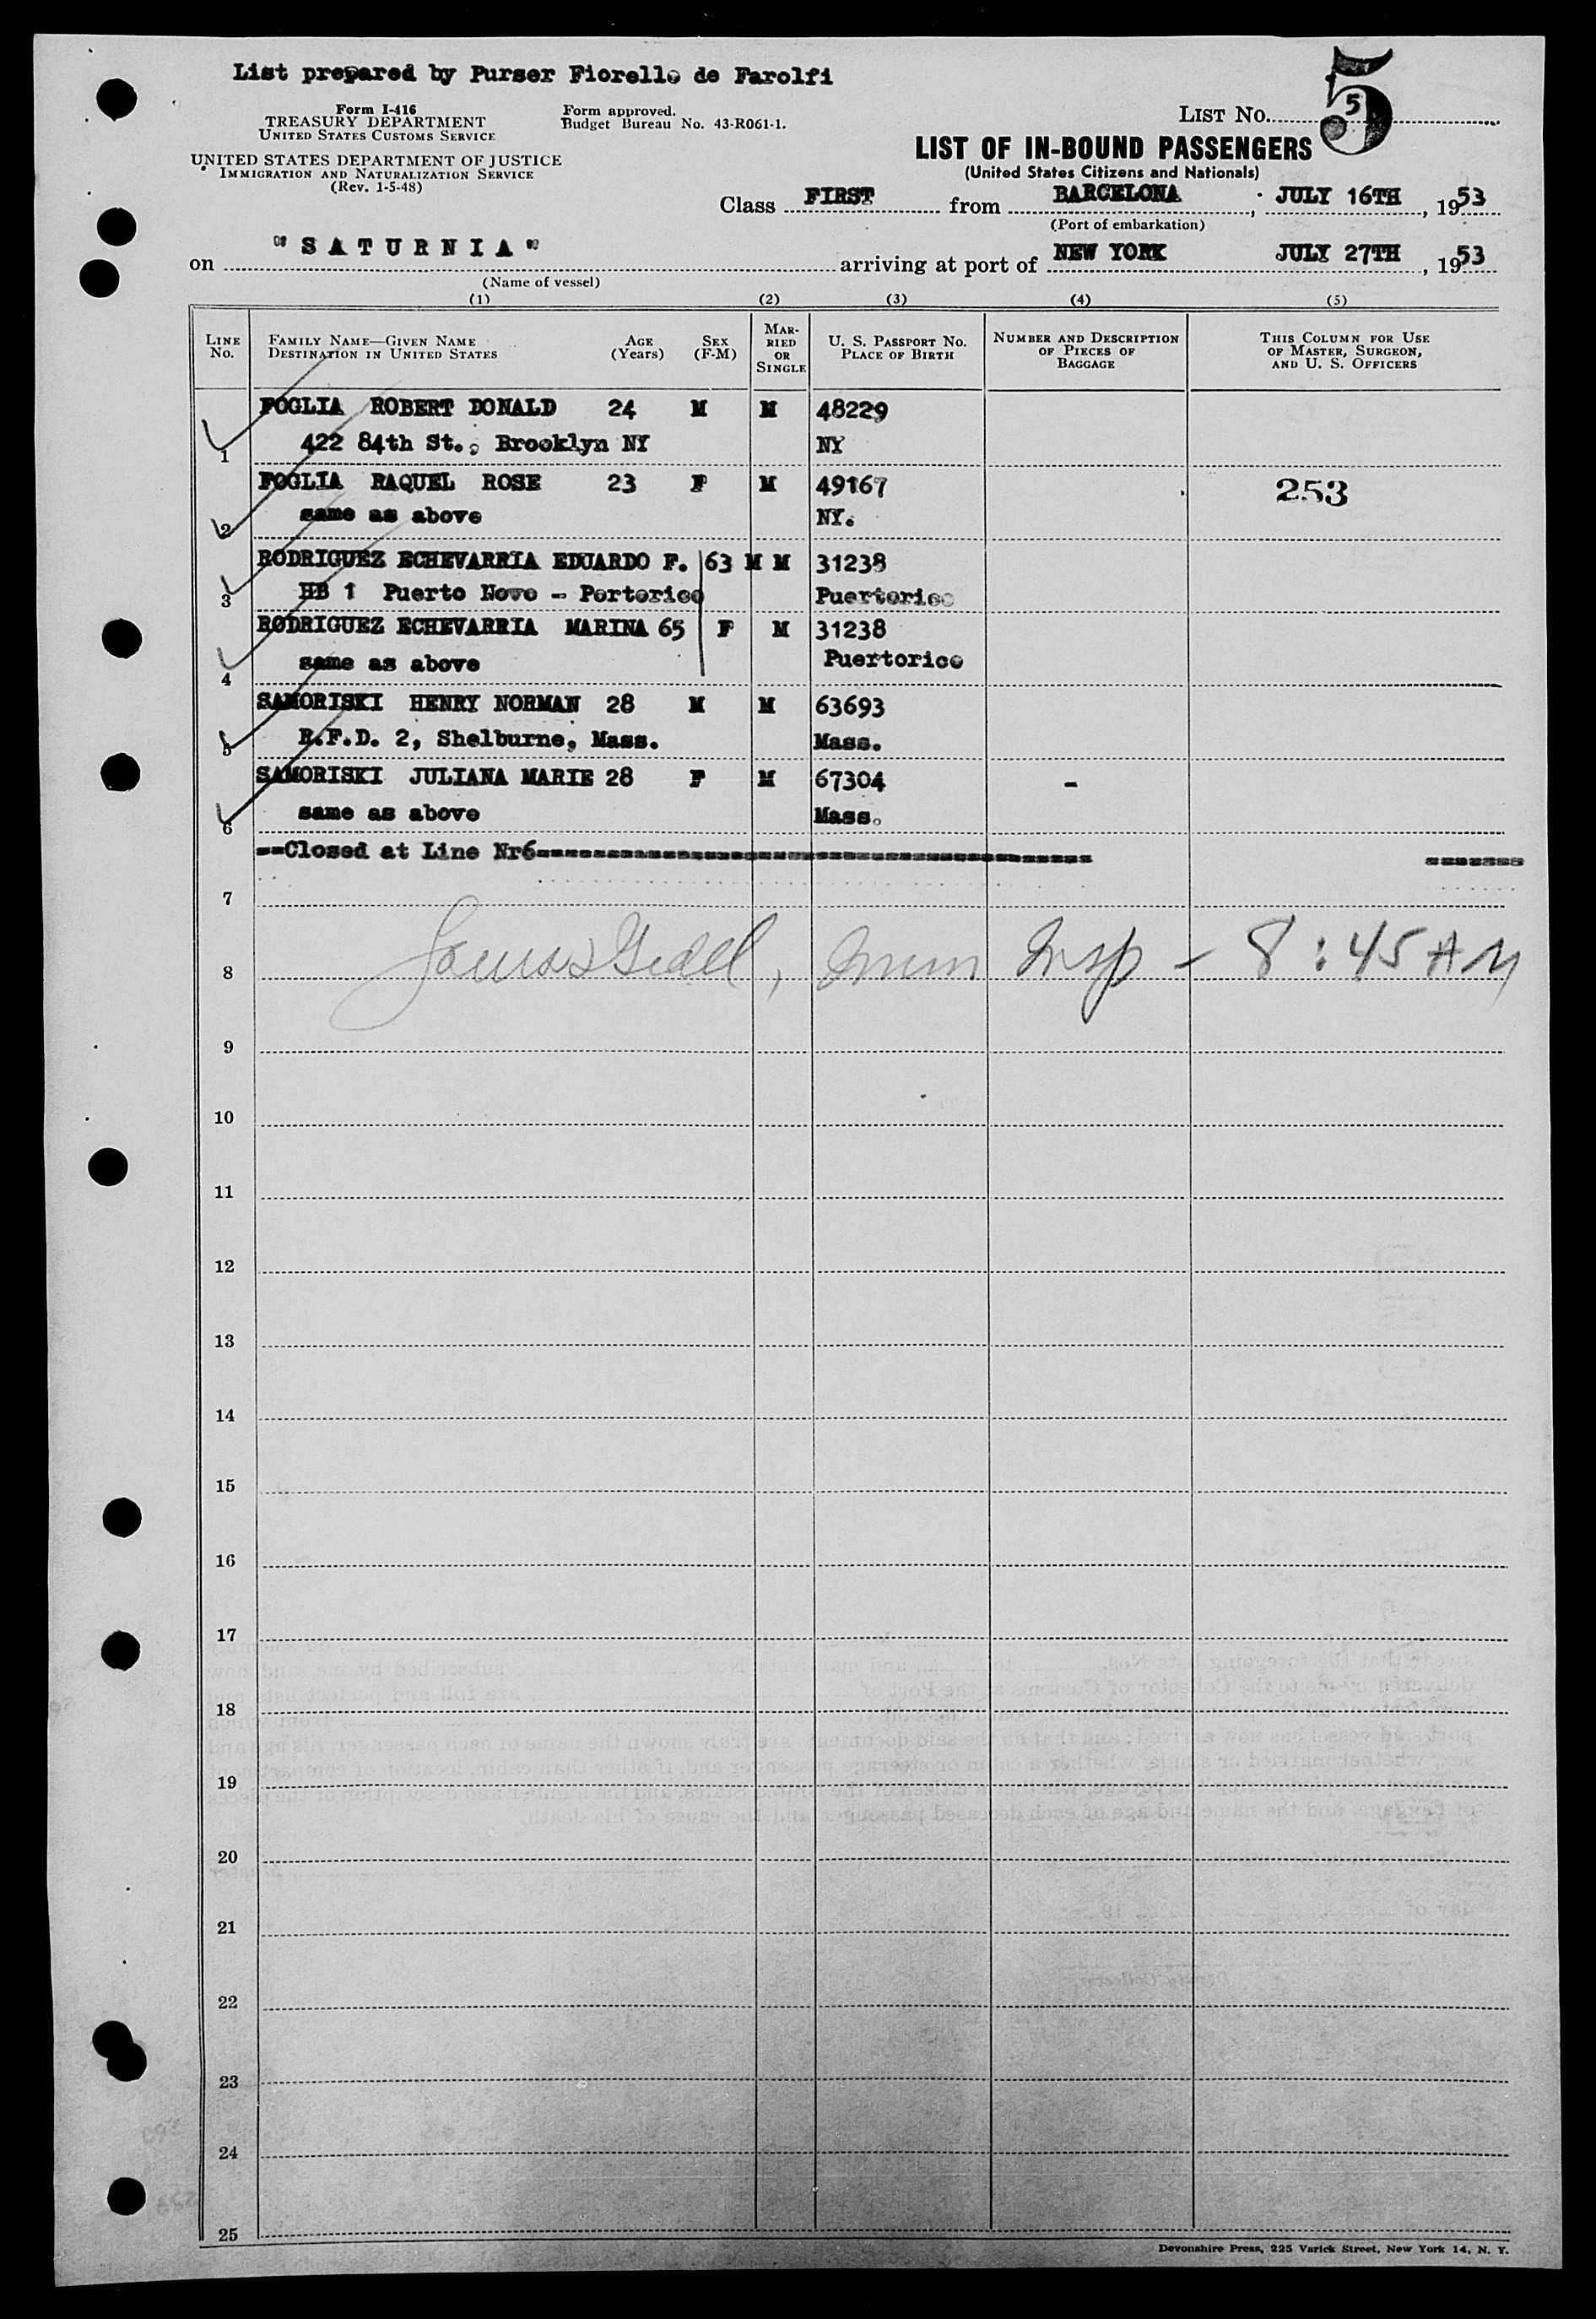 List prepared by Purser Fiorello de Farolfi
Form I-416
TREASURY DEPARTMENT
UNITED STATES CUSTOMS SERVICE
Form approved.
Budget Bureau No. 43-R061-1.
LIST No. 5
5
UNITED STATES DEPARTMENT OF JUSTICE
IMMIGRATION AND NATURALIZATION SERVICE
(Rev. 1-5-48)
LIST OF IN-BOUND PASSENGERS
(United States Citizens and Nationals)
Class FIRST from BARCELONA, JULY 16TH, 1953
(Port of embarkation)
on "SATURNIA" arriving at port of NEW YORK JULY 27TH, 1953
(Name of vessel)
(1) (2) (3) (4) (5)
LINE No. FAMILY NAME—GIVEN NAME DESTINATION IN UNITED STATES AGE (Years) SEX (F-M) MARRIED OR SINGLE U. S. PASSPORT No. PLACE OF BIRTH NUMBER AND DESCRIPTION OF PIECES OF BAGGAGE THIS COLUMN FOR USE OF MASTER, SURGEON, AND U. S. OFFICERS
FOGLIA ROBERT DONALD 24 M M 48229
1 422 84th St., Brooklyn NY NY
FOGLIA RAQUEL ROSE 23 F M 49167 253
2 same as above NY.
RODRIGUEZ ECHEVARRIA EDUARDO F. 63 M M 31238
3 HB 1 Puerto Novo - Portorico Puertorico
RODRIGUEZ ECHEVARRIA MARINA 65 F M 31238
4 same as above Puertorico
SAMORISKI HENRY NORMAN 28 M M 63693
5 R.F.D. 2, Shelburne, Mass. Mass.
SAMORISKI JULIANA MARIE 28 F M 67304 -
6 same as above Mass.
==Closed at Line Nr6==
7
8 Imm Insp - 8:45 AM
9
10
11
12
13
14
15
16
17
18
19
20
21
22
23
24
25
Devonshire Press, 225 Varick Street, New York 14, N. Y.